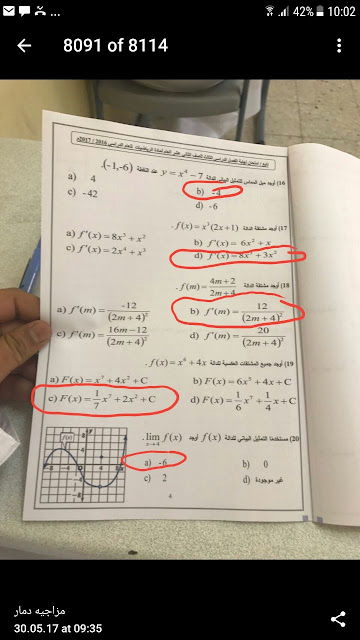 42% 10:02
8091 of 8114
تابع / امتحان نهاية الفصل الدراسي الثالث للصف الثاني عشر العام لمادة الرياضيات للعام الدراسي 2016 / 2017م
16) أوجد ميل المماس للتمثيل البياني للدالة y = x⁴ − 7 عند النقطة (-1,-6).
a) 4
b) -4
c) -42
d) -6
17) أوجد مشتقة الدالة f(x) = x³(2x+1).
a) f'(x) = 8x³ + x²
b) f'(x) = 6x² + x
c) f'(x) = 2x⁴ + x³
d) f'(x) = 8x³ + 3x²
18) أوجد مشتقة الدالة f(m) = (4m+2)/(2m+4).
a) f'(m) = -12/(2m+4)²
b) f'(m) = 12/(2m+4)²
c) f'(m) = (16m−12)/(2m+4)²
d) f'(m) = 20/(2m+4)²
19) أوجد جميع المشتقات العكسية للدالة f(x) = x⁶ + 4x.
a) F(x) = x⁷ + 4x² + C
b) F(x) = 6x⁵ + 4x + C
c) F(x) = 1/7 x⁷ + 2x² + C
d) F(x) = 1/6 x⁷ + 1/4 x + C
20) مستخدما التمثيل البياني للدالة f(x) أوجد lim x→4 f(x).
a) -6
b) 0
c) 2
d) غير موجودة
f(x)
4
مزاجيه دمار
30.05.17 at 09:35